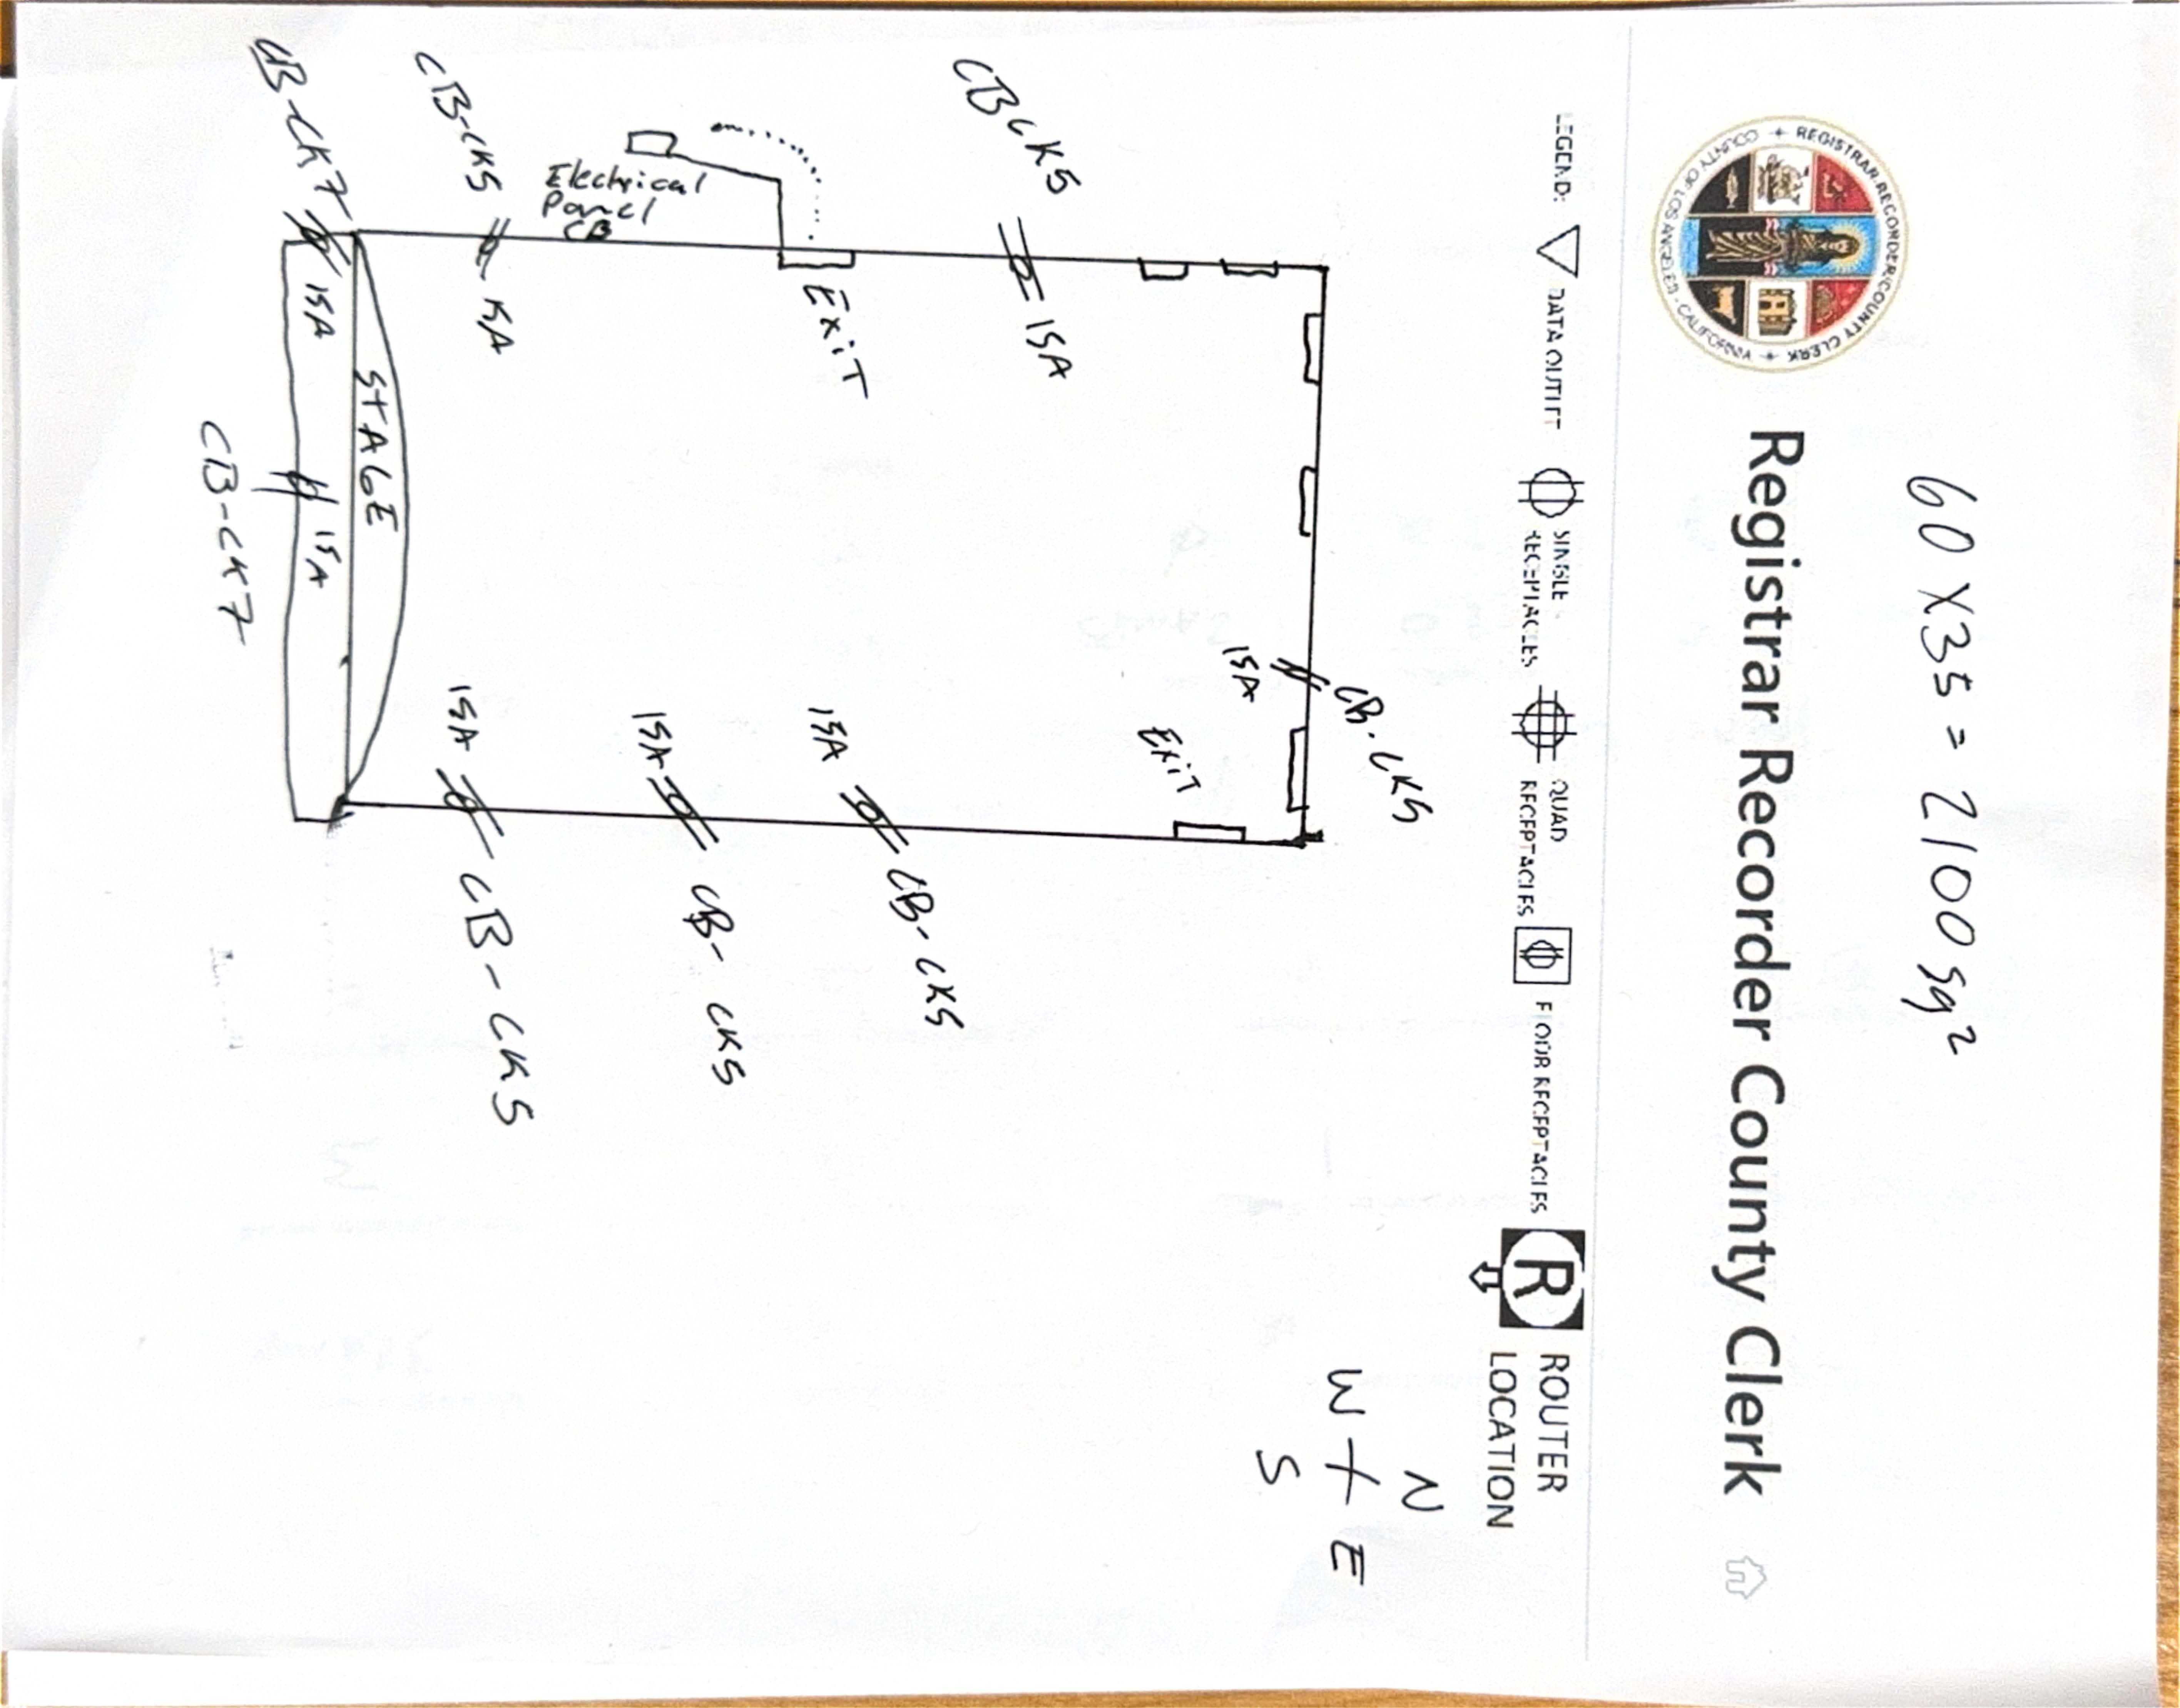 60 X 35 = 2100 sq²
Registrar Recorder County Clerk
COUNTY OF LOS ANGELES + REGISTRAR-RECORDER/COUNTY CLERK + CALIFORNIA
LEGEND:
DATA OUTLET
SINGLE RECEPTACLES
QUAD RECEPTACLES
FLOOR RECEPTACLES
R
ROUTER
LOCATION
N
W E
S
CB-CK5
15A
EXIT
CB CK5
15A
EXIT
15A
CB-CK5
Electrical
Panel
CB
15A
CB-CK5
CB-CK5
15A
15A
CB-CK5
STAGE
CB-CK7
15A
15A
CB-CK7